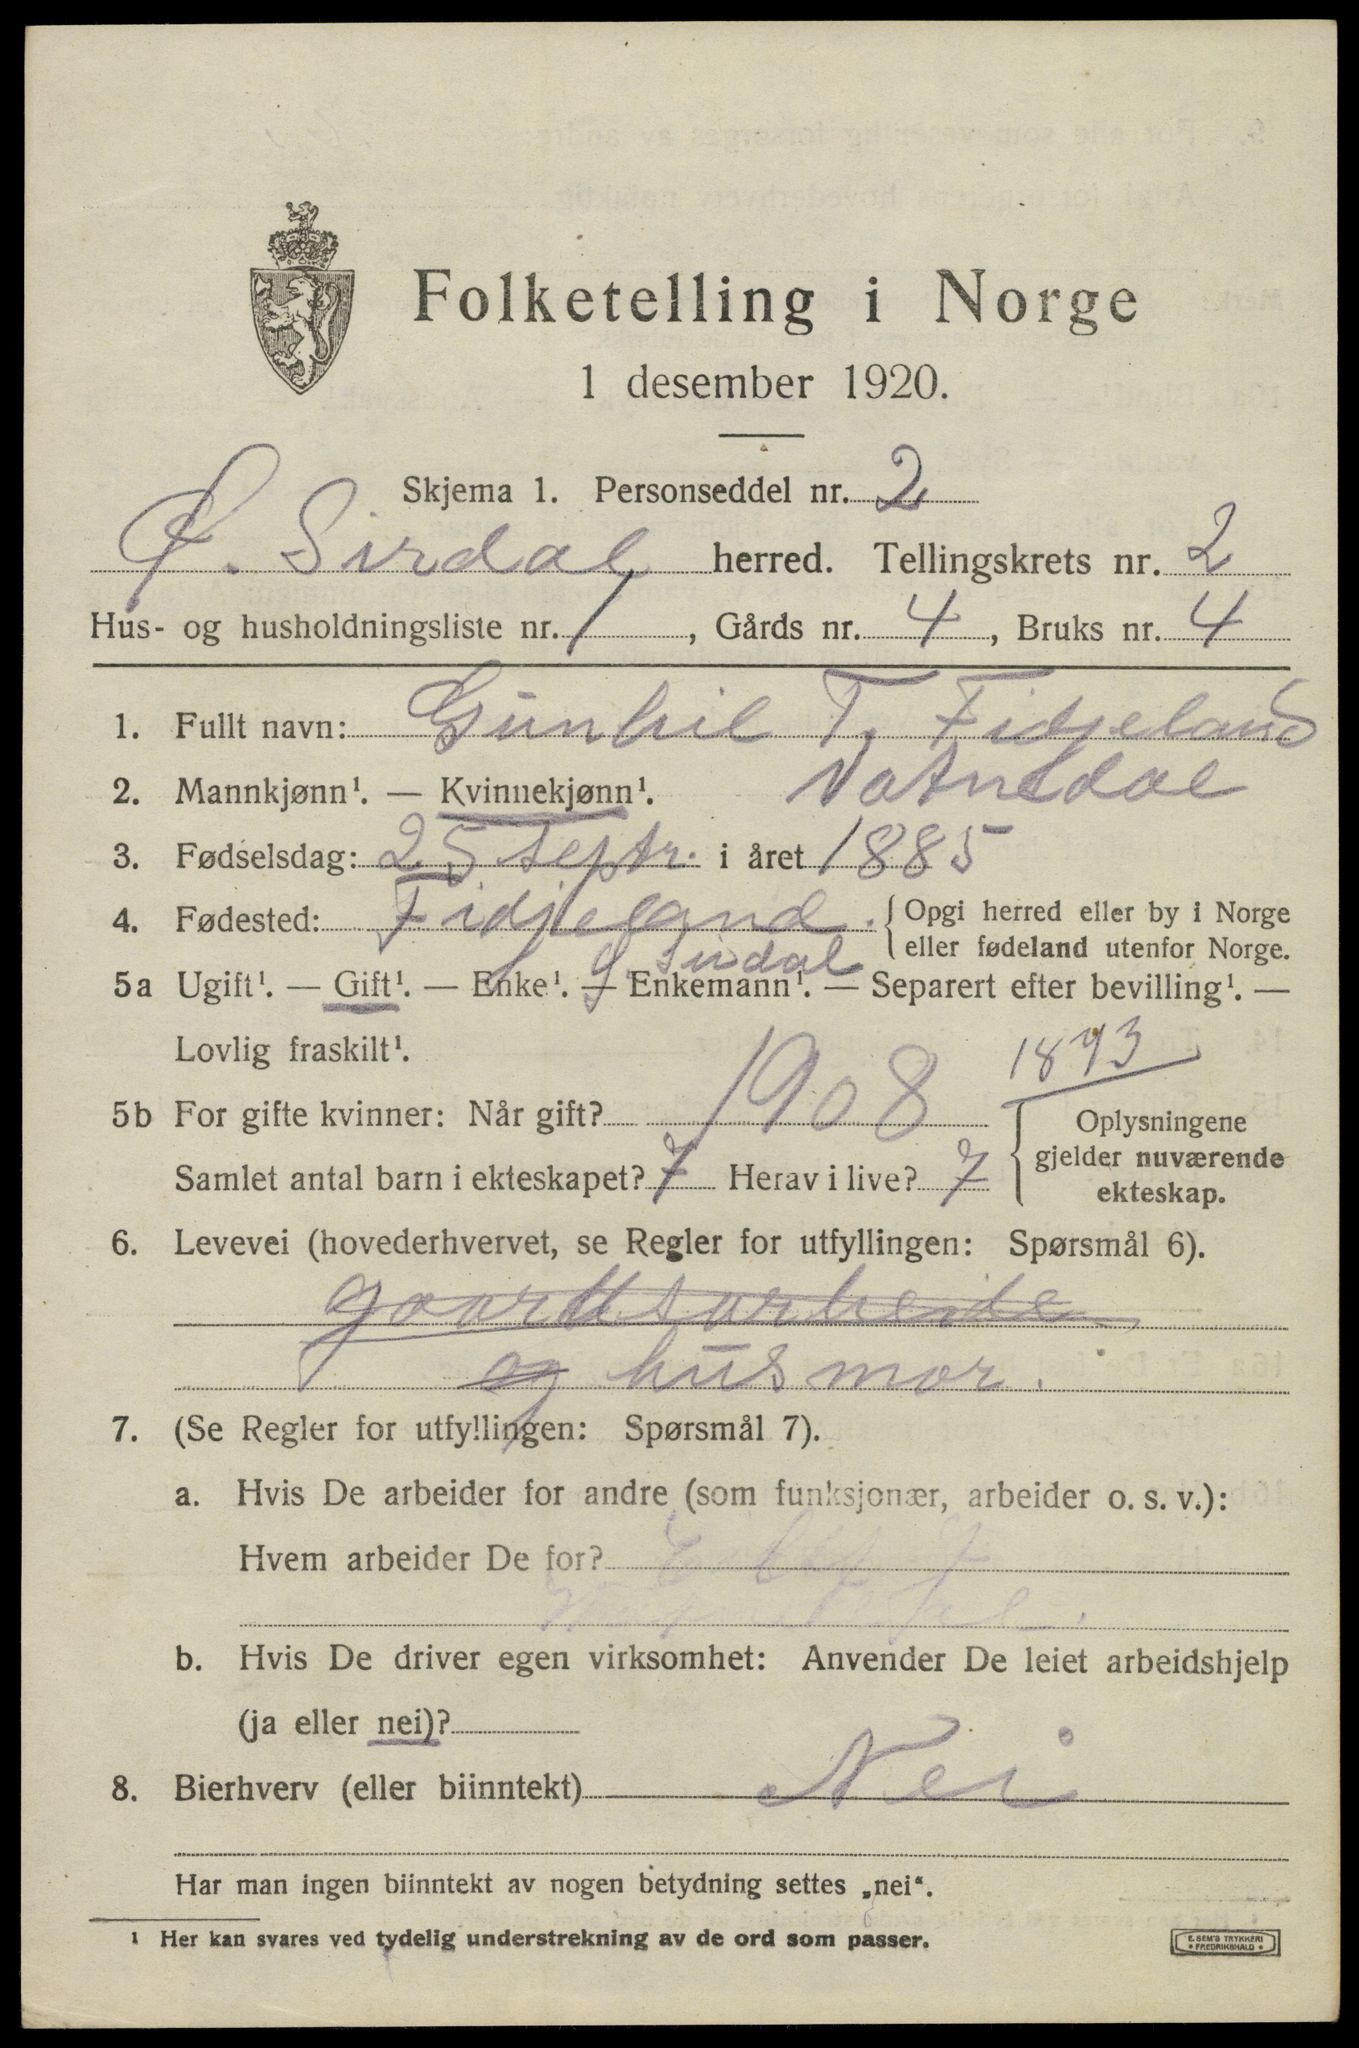 Folketelling i Norge
1 desember 1920.
Skjema 1. Personseddel nr. 2
Ø. Sirdal herred. Tellingskrets nr. 2
Hus- og husholdningsliste nr. 1, Gårds nr. 4, Bruks nr. 4
1. Fullt navn: Gunhil T. Fidjeland
Vatnedal
2. Mannkjønn¹. — Kvinnekjønn¹.
3. Fødselsdag: 25 septr. i året 1885
4. Fødested: Fidjeland. Opgi herred eller by i Norge
eller fødeland utenfor Norge.
Ø. Sirdal
5a Ugift¹. — Gift¹. — Enke¹. — Enkemann¹. — Separert efter bevilling¹. —
Lovlig fraskilt¹.
1893
5b For gifte kvinner: Når gift? 1908 Oplysningene
gjelder nuværende
Samlet antal barn i ekteskapet? 7 Herav i live? 7
ekteskap.
6. Levevei (hovederhvervet, se Regler for utfyllingen: Spørsmål 6).
gaardsarbeide
og husmor.
7. (Se Regler for utfyllingen: Spørsmål 7).
a. Hvis De arbeider for andre (som funksjonær, arbeider o. s. v.):
Hvem arbeider De for?
b. Hvis De driver egen virksomhet: Anvender De leiet arbeidshjelp
(ja eller nei)?
8. Bierhverv (eller biinntekt) Nei
Har man ingen biinntekt av nogen betydning settes „nei“.
¹ Her kan svares ved tydelig understrekning av de ord som passer.
E. SEM'S TRYKKERI
FREDRIKSHALD